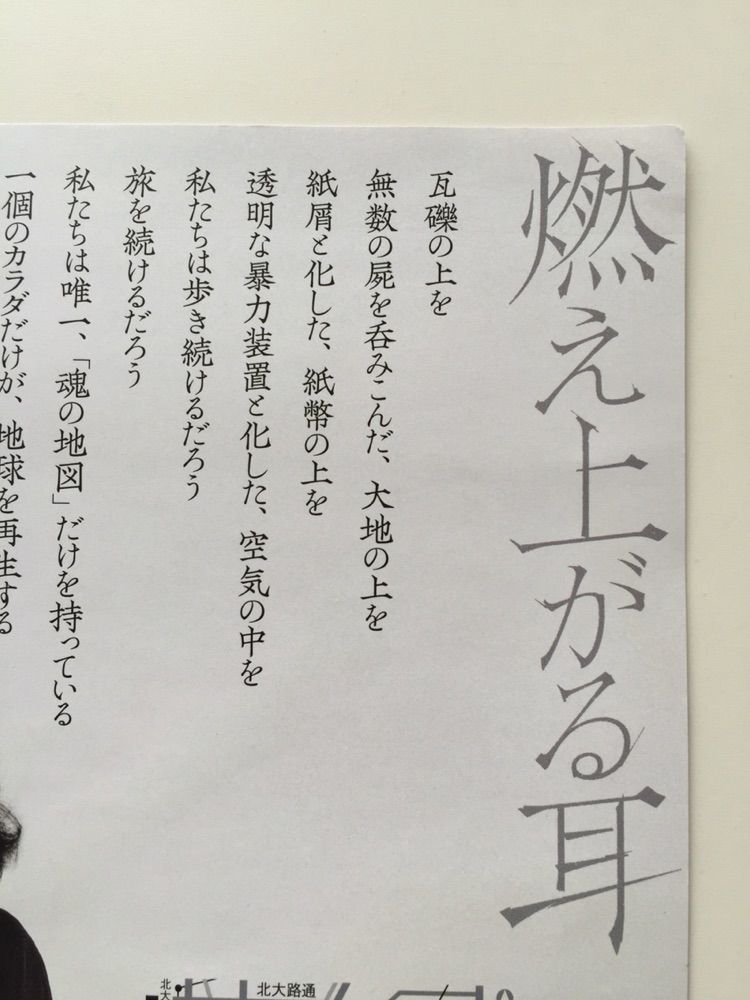 燃え上がる耳
瓦礫の上を
無数の屍を呑みこんだ、大地の上を
紙屑と化した、紙幣の上を
透明な暴力装置と化した、空気の中を
私たちは歩き続けるだろう
旅を続けるだろう
私たちは唯一、「魂の地図」だけを持っている
一個のカラダだけが、地球を再生する
北大路通
北大